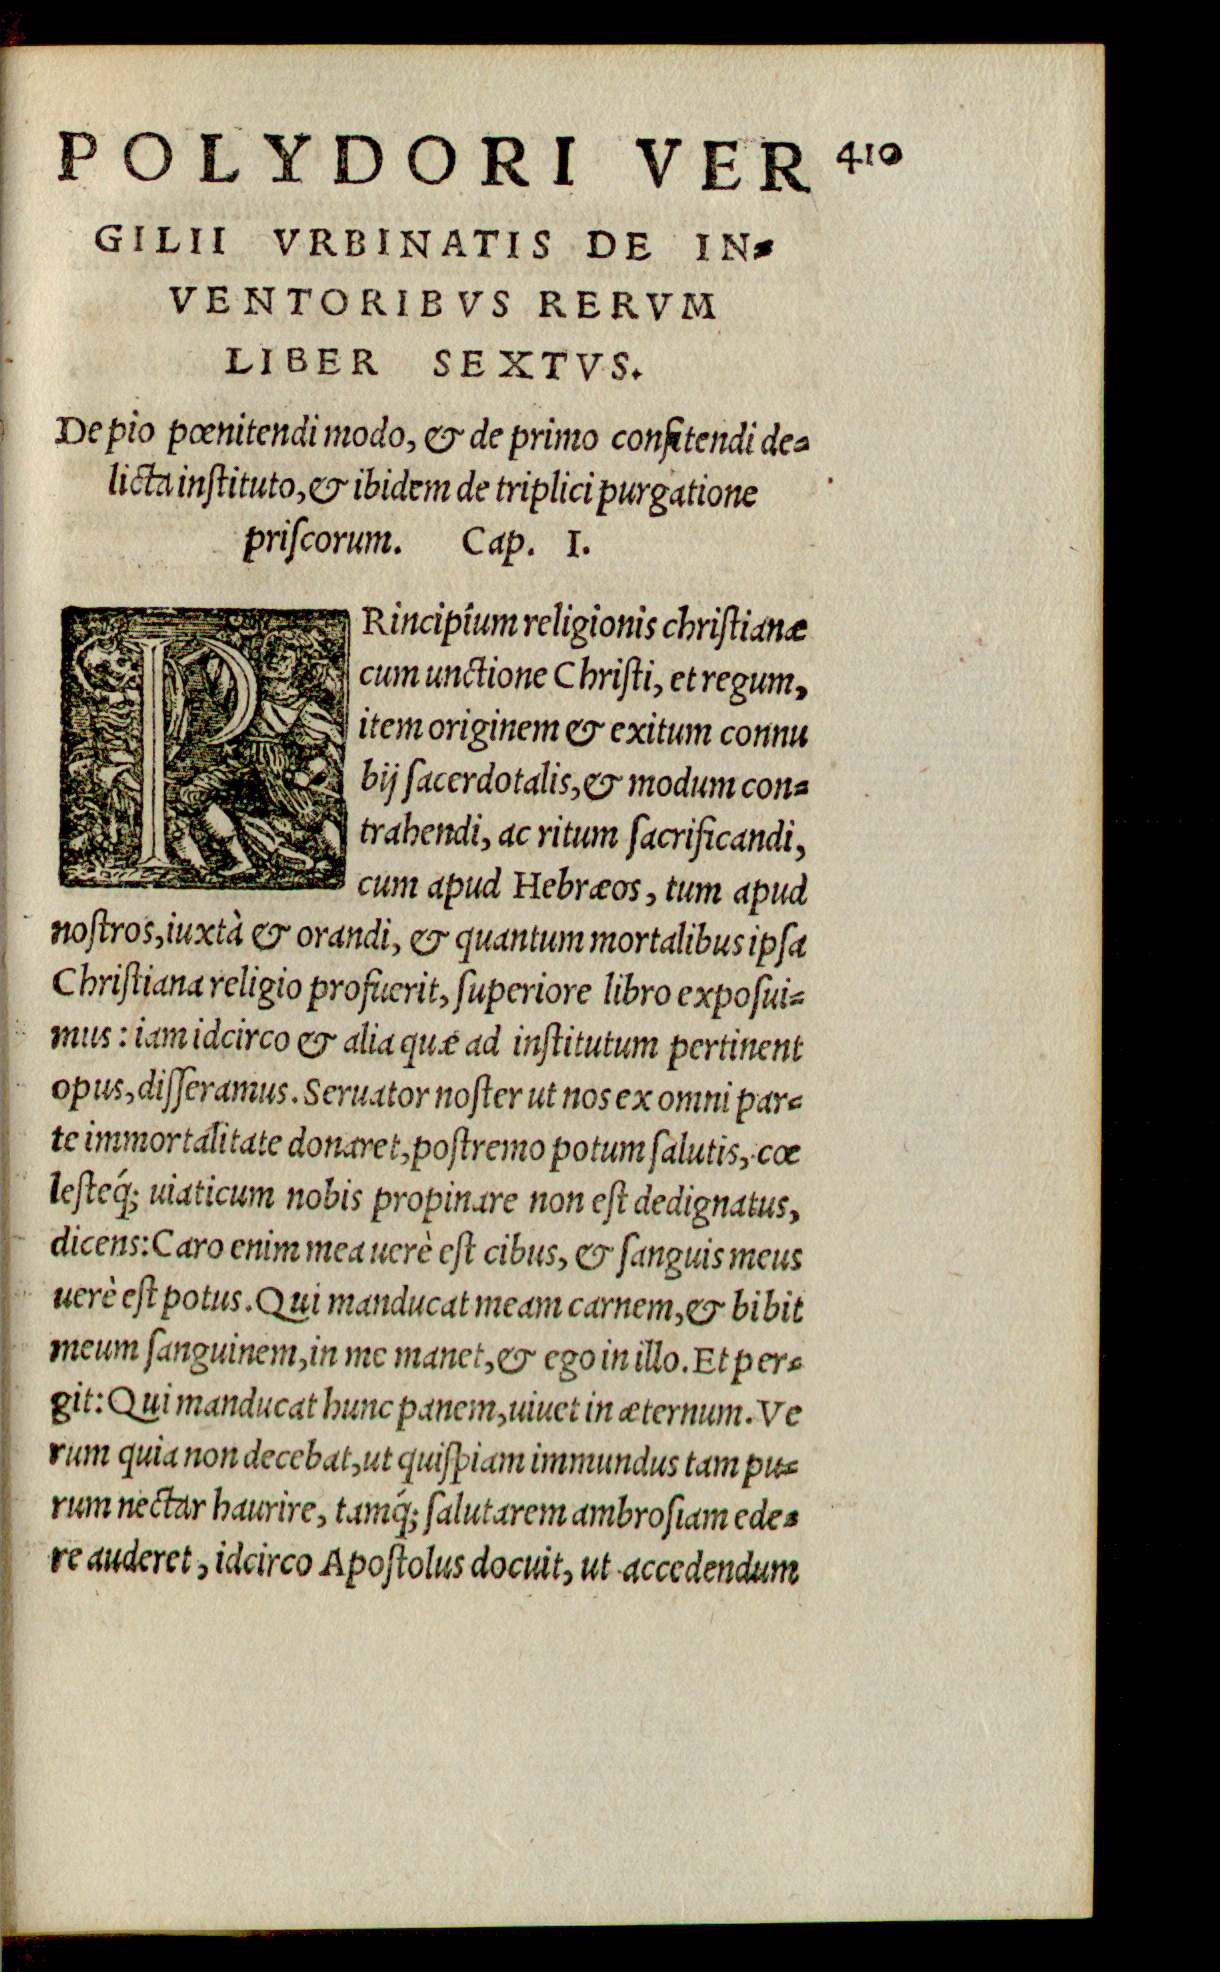 POLYDORI VER 410
GILII VRBINATIS DE IN-
VENTORIBVS RERVM
LIBER SEXTVS.
De pio pœnitendi modo, & de primo confitendi de-
licta inſtituto, & ibidem de triplici purgatione
priſcorum. Cap. I.
PRincipium religionis chriſtianæ
cum unctione Chriſti, et regum,
item originem & exitum connu
bij ſacerdotalis, & modum con-
trahendi, ac ritum ſacrificandi,
cum apud Hebræos, tum apud
noſtros, iuxtà & orandi, & quantum mortalibus ipſa
Chriſtiana religio profuerit, ſuperiore libro expoſui-
mus: iam idcirco & alia quæ ad inſtitutum pertinent
opus, diſſeramus. Seruator noſter ut nos ex omni par-
te immortalitate donaret, poſtremo potum ſalutis, cœ
leſteq́; uiaticum nobis propinare non eſt dedignatus,
dicens: Caro enim mea uerè eſt cibus, & ſanguis meus
uerè eſt potus. Qui manducat meam carnem, & bibit
meum ſanguinem, in me manet, & ego in illo. Et per-
git: Qui manducat hunc panem, uiuet in æternum. Ve
rum quia non decebat, ut quiſpiam immundus tam pu-
rum nectar haurire, tamq́; ſalutarem ambroſiam ede-
re auderet, idcirco Apoſtolus docuit, ut accedendum